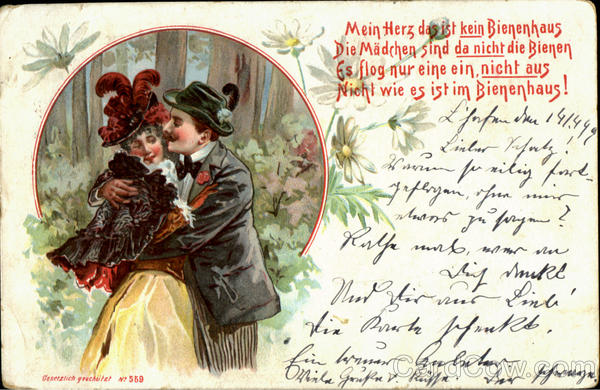 Mein Herz das ist kein Bienenhaus
Die Mädchen sind da nicht die Bienen
Es flog nur eine ein, nicht aus
Nicht wie es ist im Bienenhaus!
L'hafen den 14/4 99
Lieber Schatz!
Warum so eilig fort-
geflogen, ohne mir
etwas zu sagen?
Rathe mal, wer an
Dich denkt
Und Dir aus Lieb'
die Karte schenkt.
Ein treuer
Viele Grüße u. Küsse
Gesetzlich geschützt No 569
CardCow.com